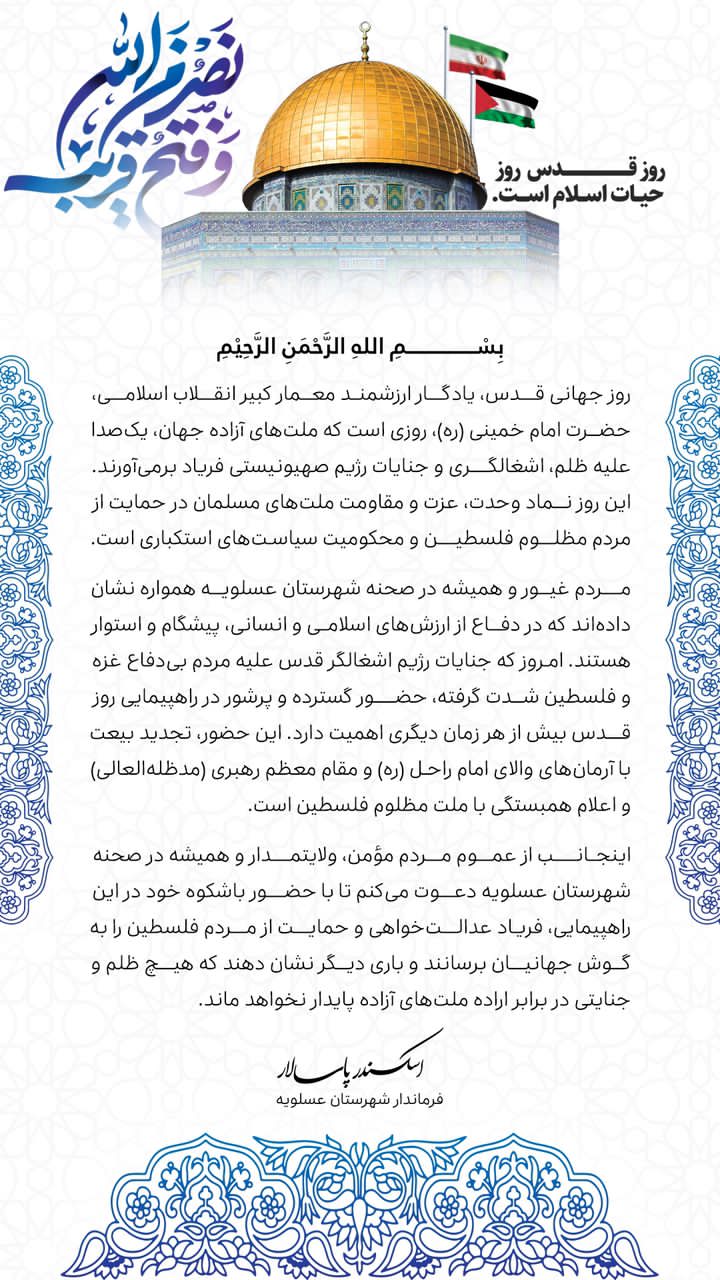 نَصْرٌ مِنَ اللهِ
وَفَتْحٌ قَرِیبٌ
روز قـــدس روز
حیـات اسـلام اسـت.
بِسْـــــمِ اللهِ الرَّحْمَنِ الرَّحِيْمِ
روز جهانی قــدس، یادگــار ارزشمنـد معــمار کبیر انقــلاب اسلامــی،
حضــرت امام خمینی (ره)، روزی است که ملت‌های آزاده جهان، یک‌صدا
علیه ظلم، اشغالگــری و جنایات رژیم صهیونیستی فریاد برمی‌آورند.
این روز نــماد وحدت، عزت و مقاومت ملت‌های مسلمان در حمایت از
مردم مظلــوم فلسطیــن و محکومیت سیاست‌های استکباری است.
مــردم غیــور و همیشه در صحنه شهرستان عسلویــه همواره نشان
داده‌اند که در دفــاع از ارزش‌های اسلامــی و انسانی، پیشگام و استوار
هستند. امـروز که جنایات رژیم اشغالگر قدس علیه مردم بی‌دفاع غزه
و فلسطین شـدت گرفته، حضــور گسترده و پرشور در راهپیمایی روز
قــدس بیش از هر زمان دیگری اهمیت دارد. این حضور، تجدید بیعت
با آرمان‌های والای امام راحـل (ره) و مقام معظم رهبری (مدظله‌العالی)
و اعلام همبستگی با ملت مظلوم فلسطین است.
اینجانــب از عمــوم مــردم مؤمن، ولایتمــدار و همیشه در صحنه
شهرستان عسلویه دعــوت می‌کنم تا با حضــور باشکوه خود در این
راهپیمایی، فریـاد عدالــت‌خواهی و حمایــت از مــردم فلسطین را به
گــوش جهانیــان برسانند و باری دیــگر نشان دهند که هیــچ ظلم و
جنایتی در برابر اراده ملت‌های آزاده پایدار نخواهد ماند.
اسکندر پاسالار
فرماندار شهرستان عسلویه